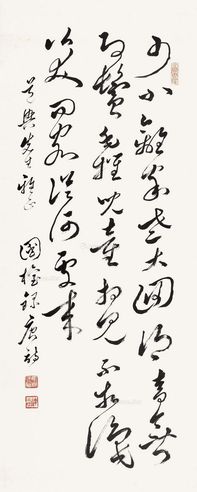 少小離家老大回鄉音無
改鬢毛摧兒童相見不相識
笑問客從何處來
道興先生雅正
國權錄唐詩